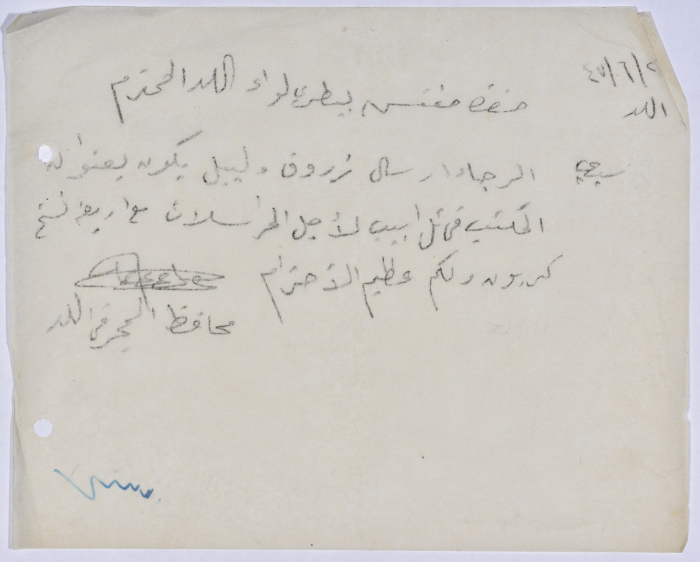 ٤٧/٦/٢
اللد
حضرة مفتش بيطري لواء اللد المحترم
سيدي الرجاء ارسال زروف وليبل يكون بعنوانه
المكتب في تل ابيب لأجل المراسلات مع اربعة نسخ
كربون ولكم عظيم الاحترام
محافظ المحجر في اللد